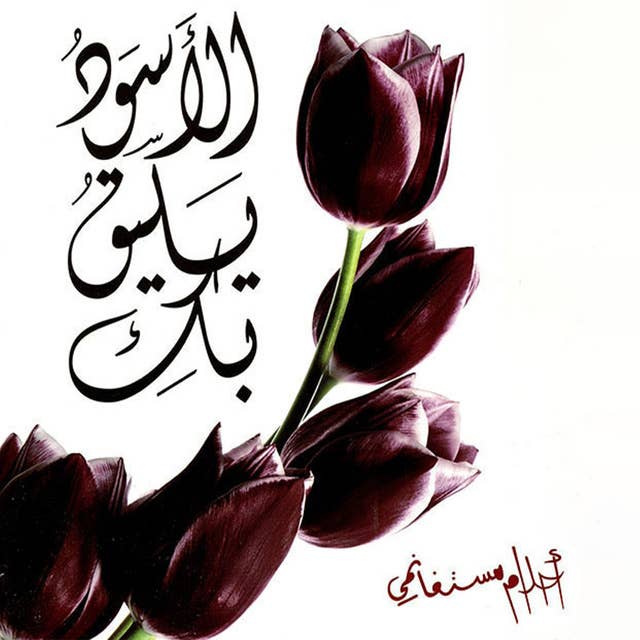 الأَسوَدُ
يَليقُ
بكِ
أحلام مستغانمي